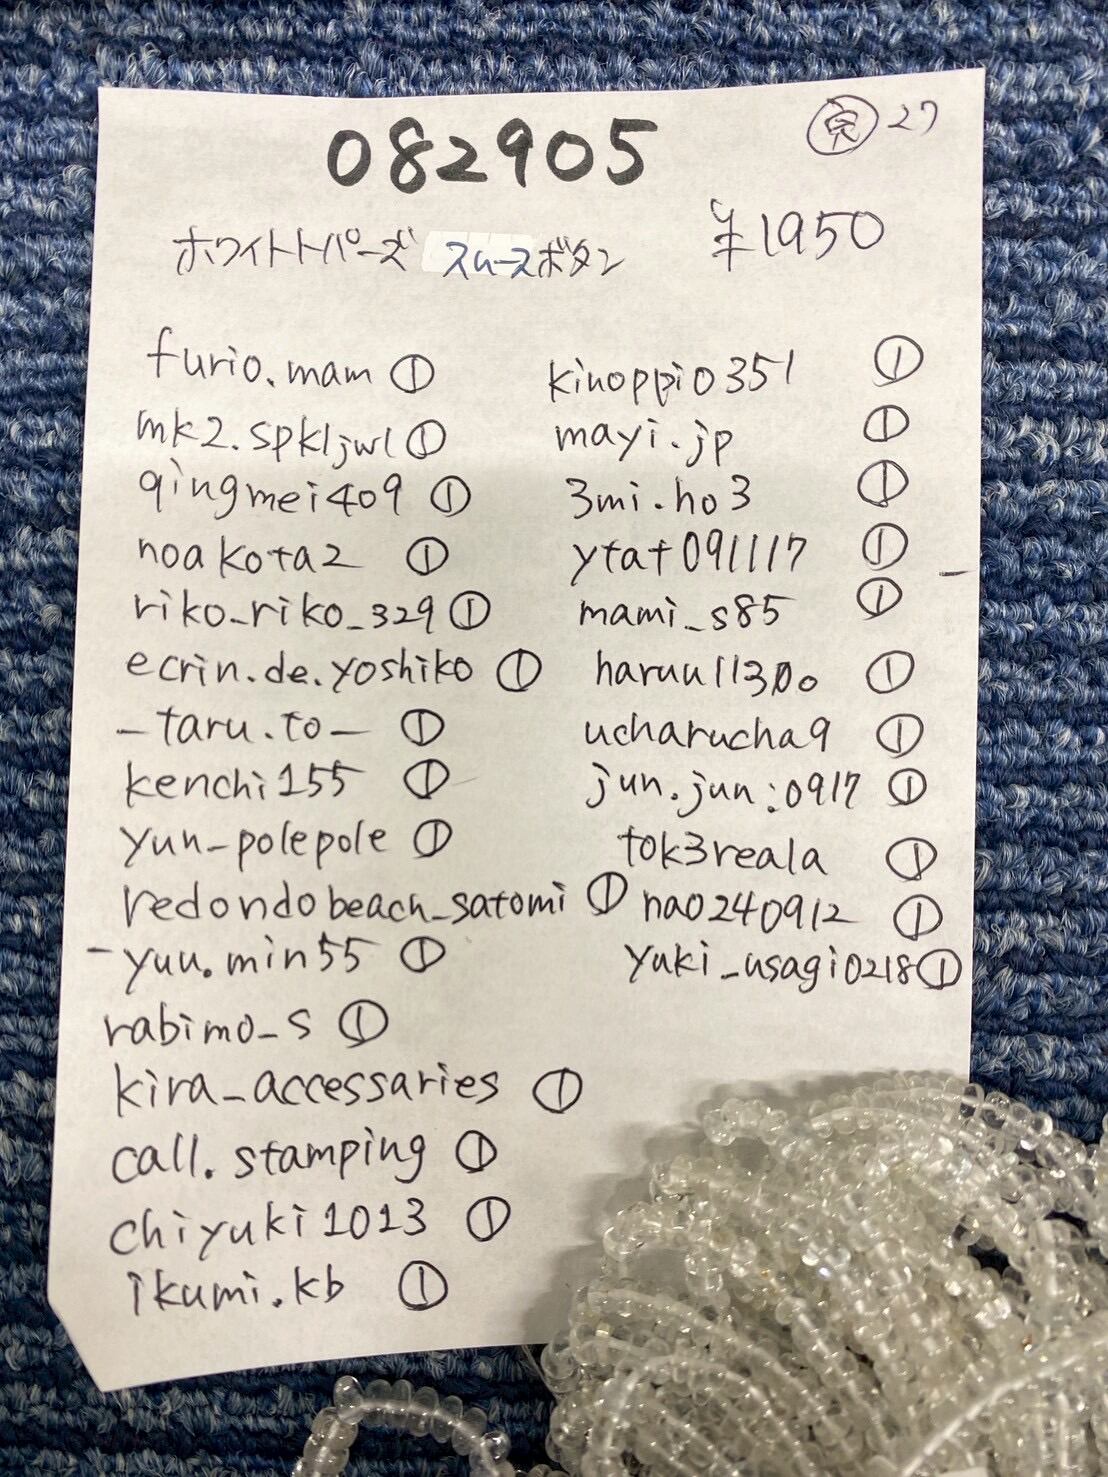 082905
完 27
ホワイトトパーズ スムースボタン ¥1950
furio.mam ①
mk2.spkljwl ①
qingmei409 ①
noakota2 ①
riko_riko_329 ①
ecrin.de.yoshiko ①
_taru.to_ ①
kenchi155 ①
yun_polepole ①
redondobeach_satomi ①
_yuu.min55 ①
rabimo_s ①
kira_accessaries ①
call.stamping ①
chiyuki1013 ①
ikumi.kb ①
kinoppi0351 ①
mayi.jp ①
3mi.ho3 ①
ytat091117 ①
mami_s85 ①
haruu11300 ①
ucharucha9 ①
jun.jun.:0917 ①
tok3reala ①
nao240912 ①
yuki_usagi0218 ①